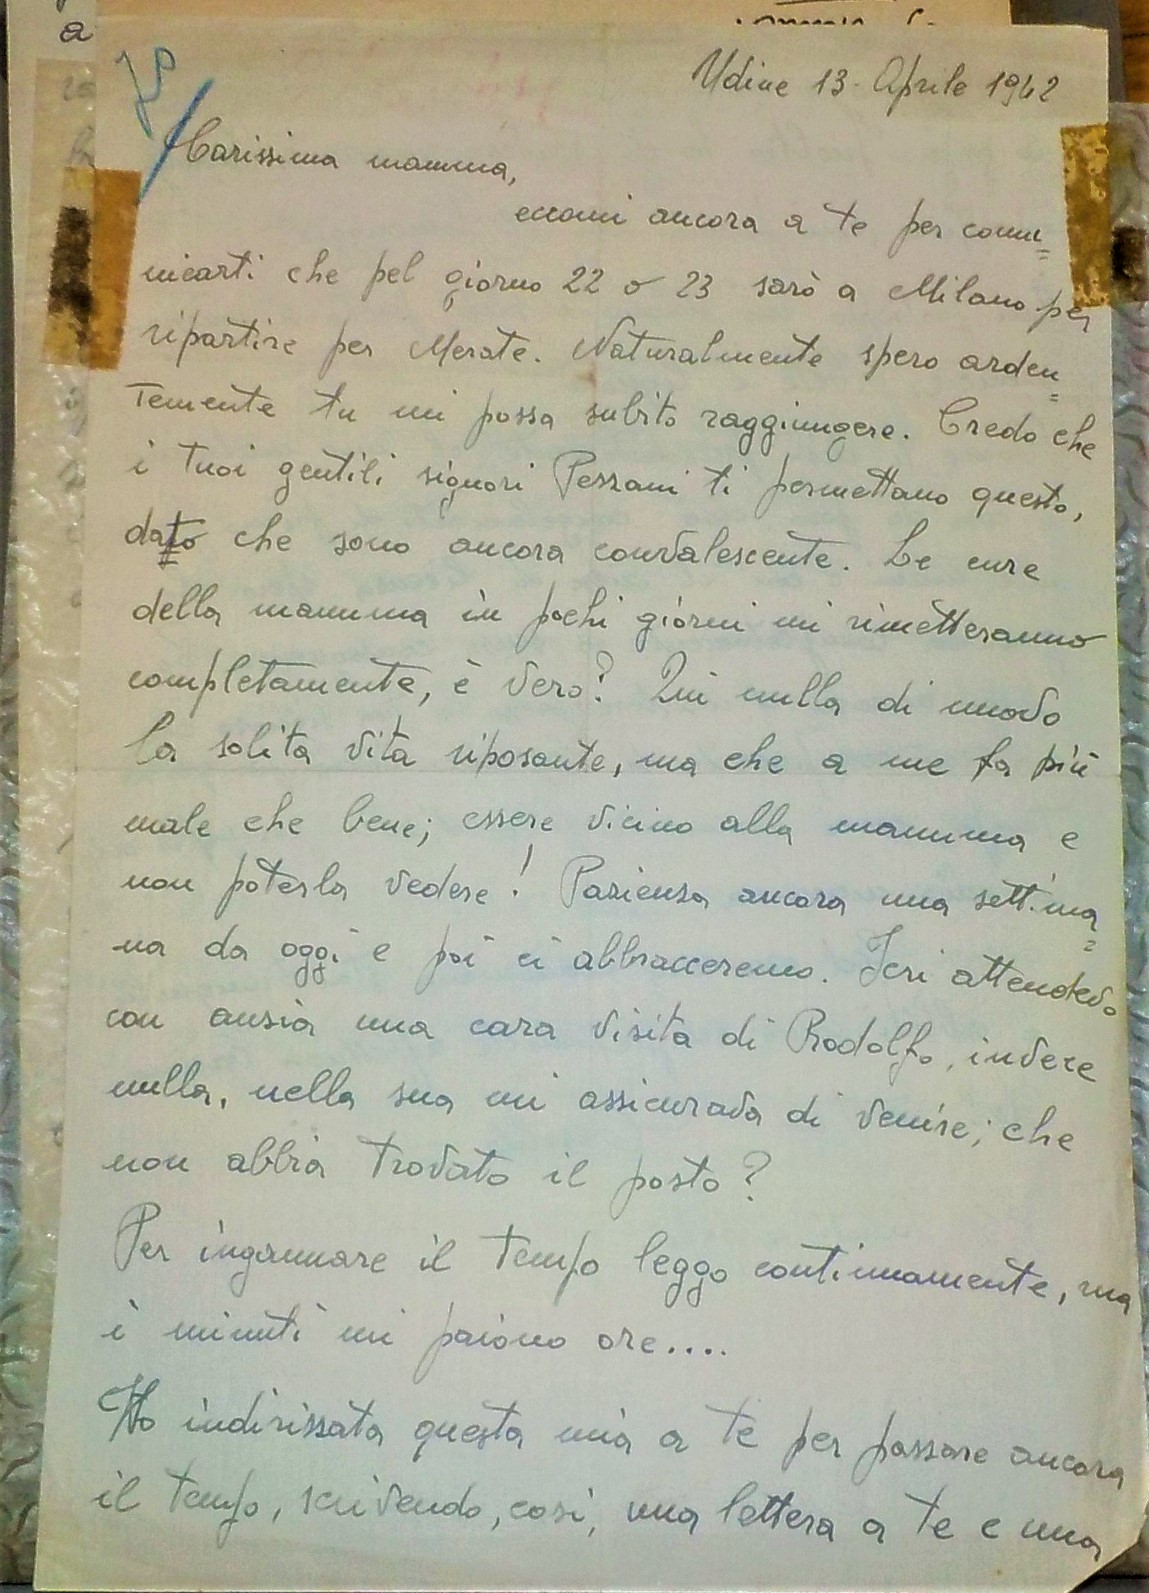 Udine 13. Aprile 1942
Carissima mamma,
eccomi ancora a te per comu=
nicarti che pel giorno 22 o 23 sarò a Milano per
ripartire per Merate. Naturalmente spero arden=
temente tu mi possa subito raggiungere. Credo che
i tuoi gentili signori Pezzani ti permettano questo,
dato che sono ancora convalescente. Le cure
della mamma in pochi giorni mi rimetteranno
completamente, è vero? Qui nulla di nuovo
la solita vita riposante, ma che a me fa più
male che bene; essere vicino alla mamma e
non poterla vedere! Pazienza ancora una settima=
na da oggi e poi ci abbracceremo. Ieri attendevo
con ansia una cara visita di Rodolfo, invece
nulla, nella sua mi assicurava di venire; che
non abbia trovato il posto?
Per ingannare il tempo leggo continuamente, ma
i minuti mi paiono ore....
Ho indirizzata questa mia a te per passare ancora
il tempo, scrivendo, così, una lettera a te e una